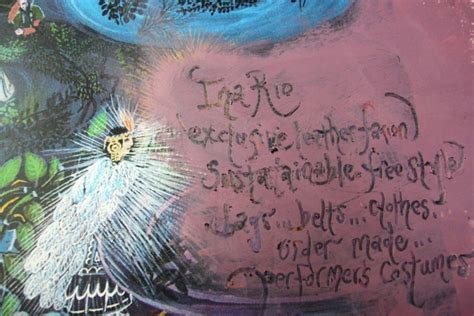 Ina Rio
(exclusive leather faxion)
Sustainable freestyle
bags... belts... clothes..
order made...
performers costumes